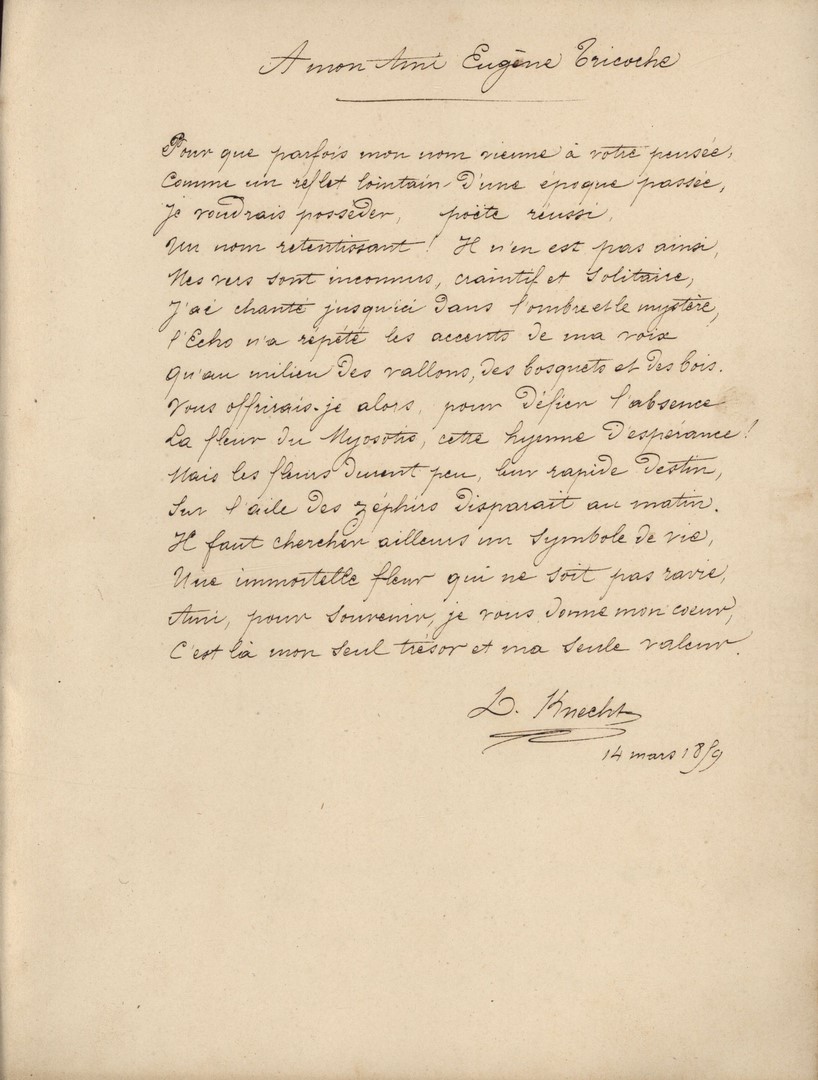 A mon Ami Eugène Tricoche
Pour que parfois mon nom vienne à votre pensée,
Comme un reflet lointain D'une époque passée,
Je voudrais posséder, poëte réussi,
Un nom retentissant ! Il n'en est pas ainsi,
Mes vers sont inconnus, craintif et solitaire,
J'ai chanté jusqu'ici Dans l'ombre et le mystère,
l'Echo n'a répété les accents de ma voix
qu'au milieu Des vallons, des bosquets et des bois.
Vous offrirais-je alors, pour Défier l'absence
La fleur du Myosotis, cette hymne D'espérance !
Mais les fleurs durent peu, leur rapide Destin,
Sur l'aile des zéphirs Disparait au matin.
Il faut chercher ailleurs un symbole de vie,
Une immortelle fleur qui ne soit pas ravie,
Ami, pour souvenir, je vous donne mon coeur,
C'est là mon seul trésor et ma seule valeur.
L. Knecht
14 mars 1859